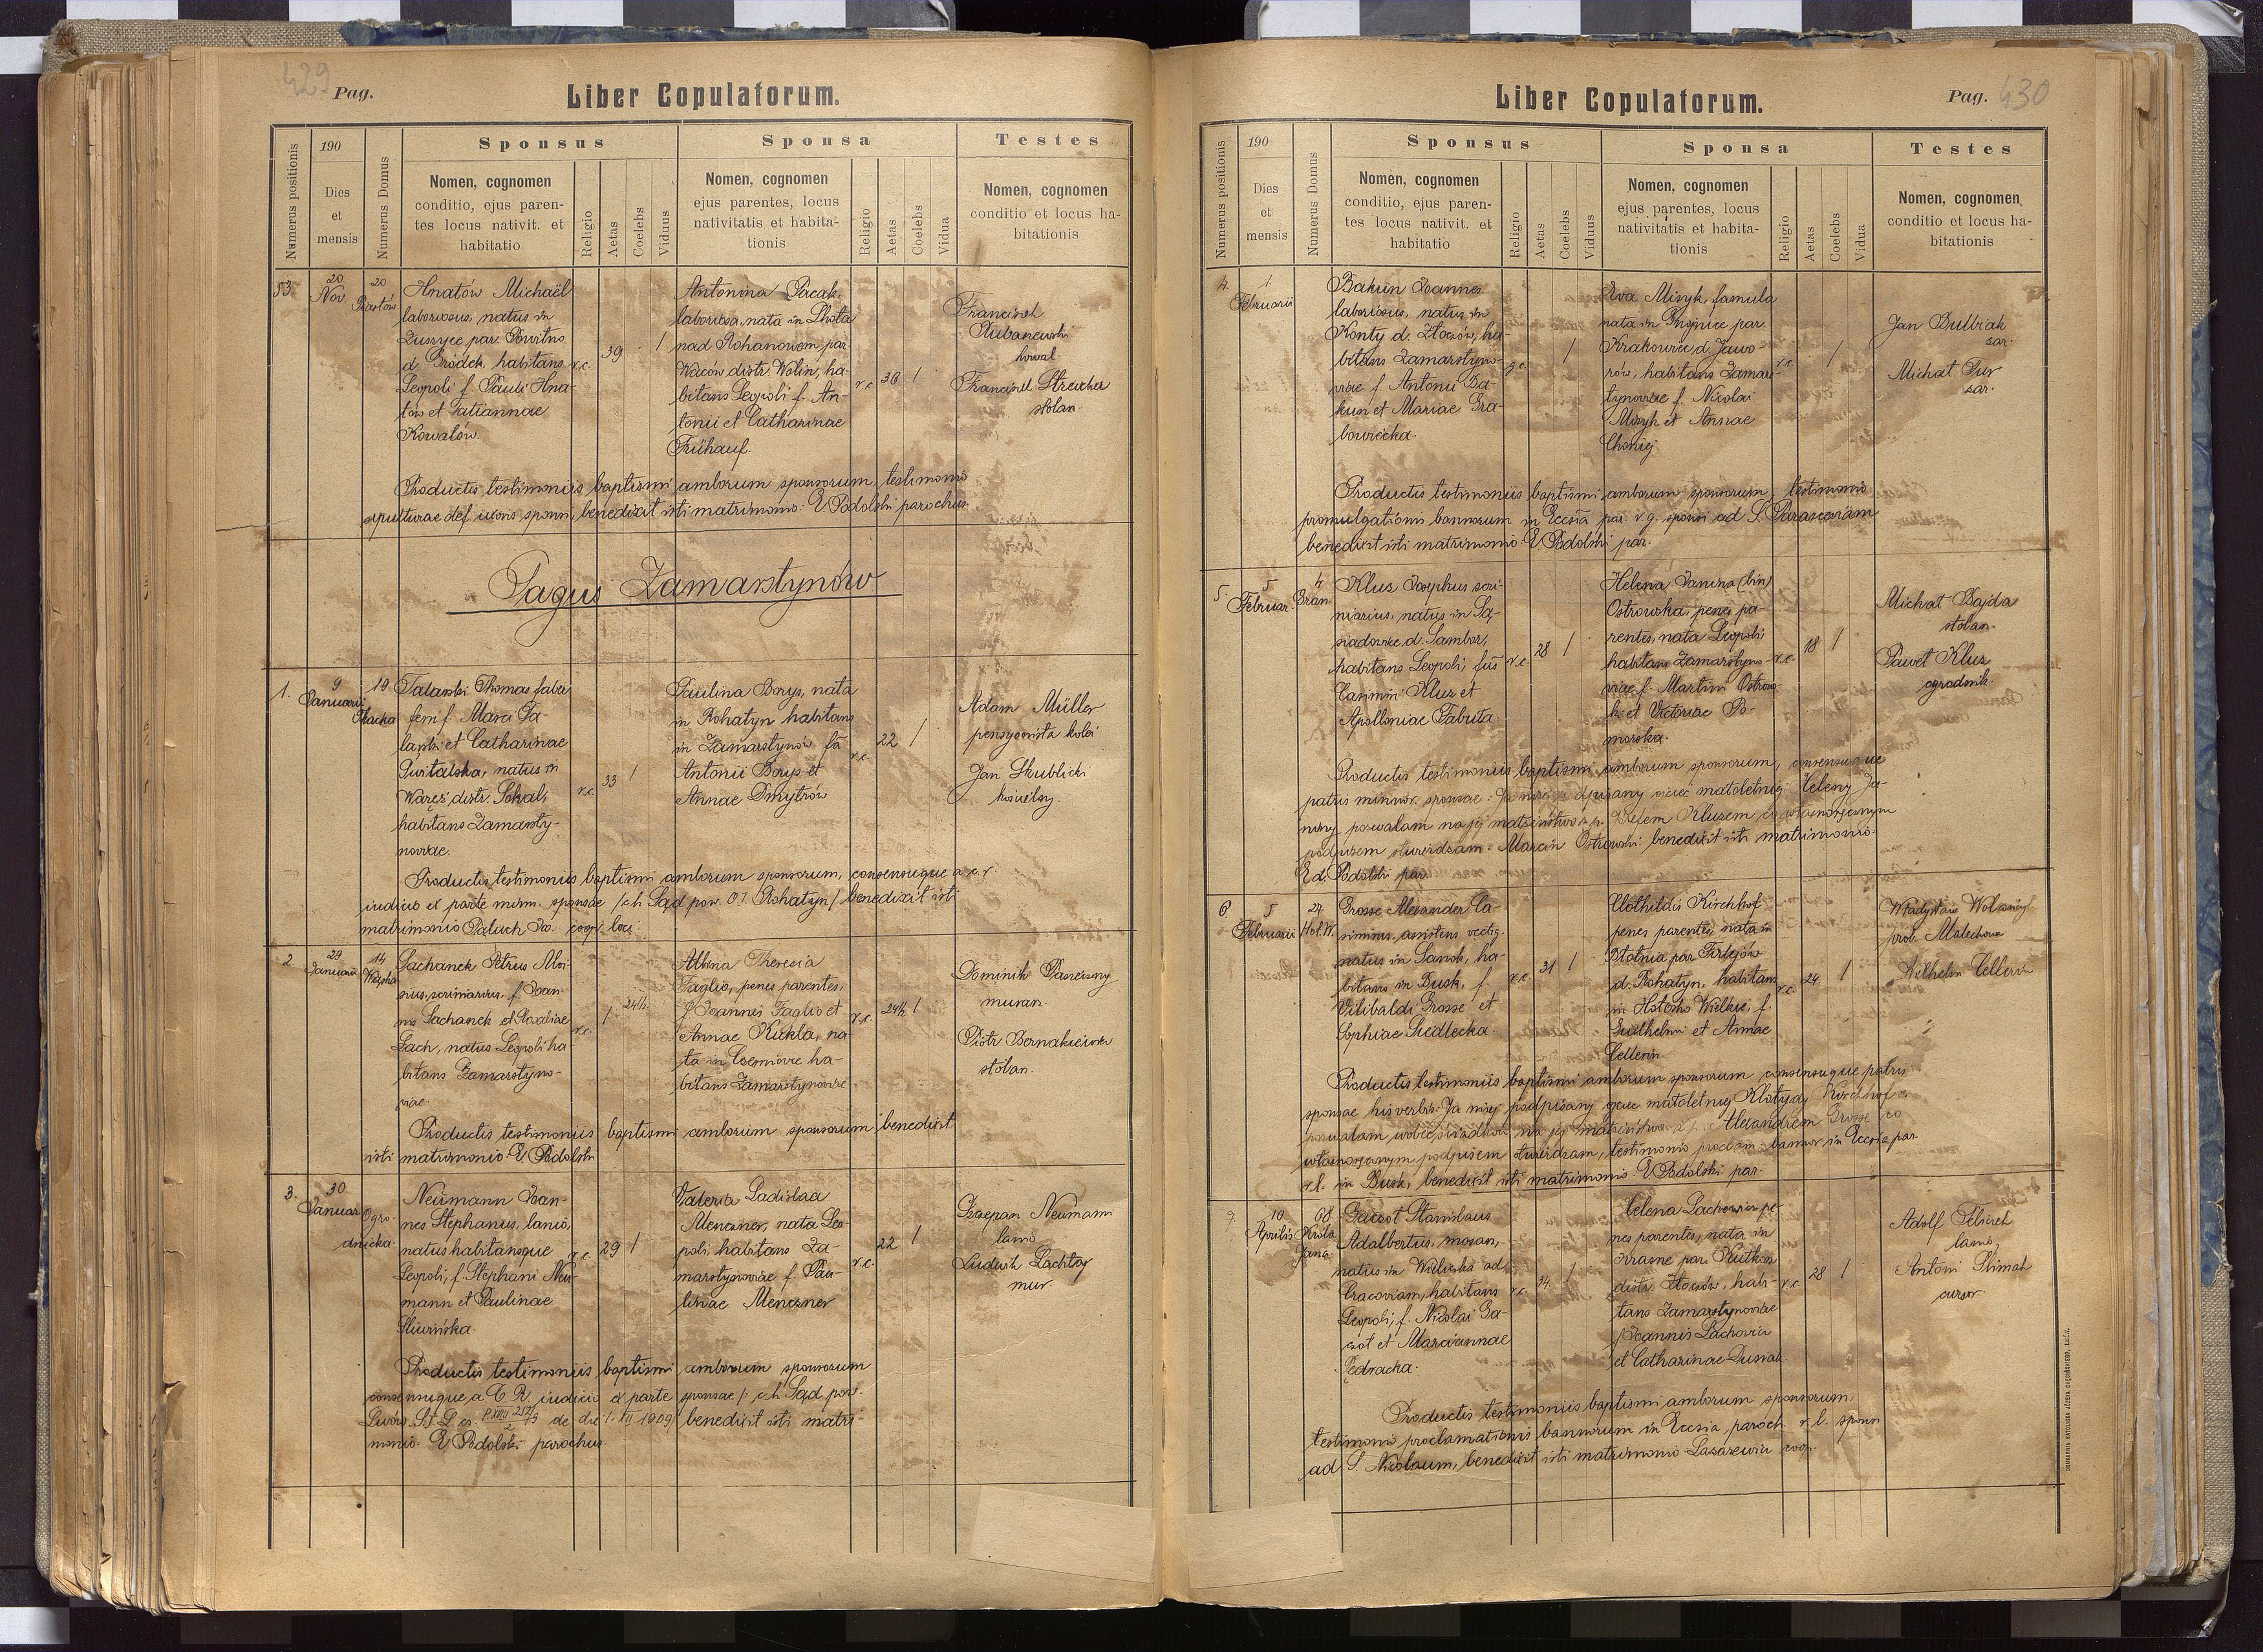 429 Pag.
Liber Copulatorum.
Numerus positionis
190
Dies
et
mensis
Numerus Domus
Sponsus
Nomen, cognomen
conditio, ejus paren-
tes locus nativit. et
habitatio
Religio
Aetas
Coelebs
Viduus
Sponsa
Nomen, cognomen
ejus parentes, locus
nativitatis et habita-
tionis
Religio
Aetas
Coelebs
Vidua
Testes
Nomen, cognomen
conditio et locus ha-
bitationis
53.
20
Nov.
20
Hnatów Michaël
laboriosus, natus in
par. Powitno
d. Gródek, habitans
Leopoli f. Pauli Hna-
tów et Tatiannae
Kowalów.
r.c.
39
1
Antonina Pacak,
laboriosa, nata in Lhota
nad Rohanowem par.
Waców distr. Wolin, ha-
bitans Leopoli f. An-
tonii et Catharinae
Frühauf.
r.c.
36
1
Francisek
kowal.
Francisek Streicher
stolan.
Productis testimoniis baptismi amborum sponsorum, testimonio
sepulturae def. uxoris sponsi, benedixit isti matrimonio: E Podolski parochus.
Pagus Zamarstynów
1.
9
Januarii
19
Talarski Thomas faber
ferri f. Marci Ta-
larski et Catharinae
natus in
Waręż, distr. Sokal,
habitans Zamarsty-
noviae.
r.c.
33
1
Paulina Borys, nata
in Rohatyn habitans
in Zamarstynów fa
Antonii Borys et
Annae Dmytrów
r.c.
22
1
Adam Müller
pensyonista kolei
Jan Skublicki
kościelny.
Productis testimoniis baptismi amborum sponsorum, consensuque a c. r.
iudicio ex parte minor. sponsae /ch Sąd pow. O.I. Rohatyn/ benedixit isti
matrimonio Paluch Jo. coop. loci.
2.
29
Januarii
14
Sachanek Petrus Aloi-
sius, scriniarius, f. Joan-
nis Sachanek et Rosaliae
Lach, natus Leopoli ha-
bitans Zamarstyno-
viae.
r.c.
1
24½
Albina Theresia
Faglio, penes parentes,
f. Joannis Faglio et
Annae Kickla, na-
ta in ha-
bitans Zamarstynoviae
r.c.
24½
1
Dominik
muran.
Piotr
stolan.
Productis testimoniis baptismi amborum sponsorum benedixit
isti matrimonio: E Podolski
3.
30
Januar.
Ogro-
dnicka.
Neumann Joan-
nes Stephanus, lanio,
natus habitansque
Leopoli, f. Stephani Neu-
mann et Paulinae
Śliwińska.
r.c.
29
1
Valeria Ladislaa
Menczner, nata Leo-
poli habitans Za-
marstynoviae f. Pau-
linae Menczner
r.c.
22
1
Szczepan Neumann
lanio
Ludwik Lachta
mur.
Productis testimoniis baptismi amborum sponsorum
consensuque a C. R. iudicio ex parte sponsae /: ch Sąd pow.
Lwów. 1909/ benedixit isti matri-
monio. E Podolski parochus.
Liber Copulatorum.
Pag. 430
Numerus positionis
190
Dies
et
mensis
Numerus Domus
Sponsus
Nomen, cognomen
conditio, ejus paren-
tes locus nativit. et
habitatio
Religio
Aetas
Coelebs
Viduus
Sponsa
Nomen, cognomen
ejus parentes, locus
nativitatis et habita-
tionis
Religio
Aetas
Coelebs
Vidua
Testes
Nomen, cognomen
conditio et locus ha-
bitationis
4.
1
Februarii
Bakun Joannes
laboriosus, natus in
Konty d. Złoczów, ha-
bitans Zamarstyno-
viae f. Antonii Ba-
kun et Mariae Gra-
bowiecka.
g.c.
1
Eva Misyk, famula
nata in Gnojnice par.
Krakowiec d. Jawo-
rów, habitans Zamars-
tynoviae f. Nicolai
Misyk et Annae
r.c.
1
Jan Bulbiak
zar.
Michał
zar.
Productis testimoniis baptismi amborum sponsorum, testimonio
promulgationis bannorum in Ecclsia par. r.g. sponsi ad S. Parasceviam
benedixit isti matrimonio E Podolski par.
5.
5
Februar.
4
Klus Josephus scri-
niarius, natus in Są-
siadowice d. Sambor,
habitans Leopoli, fus
Casimiri Klus et
Apolloniae Tabuta.
r.c.
28
1
Helena Janina (bin)
Ostrowska, penes pa-
rentes, nata Leopoli,
habitans Zamarstyno-
viae f. Martini Ostrow-
ki et Victoriae Po-
morska.
r.c.
18
1
Michał Bajda
stolan.
Paweł Klus
ogrodnik.
Productis testimoniis baptismi amborum sponsorum, consensuque
patris minor. sponsae: Ja niżej podpisany ojciec małoletniej Heleny Ja-
niny pozwalam na jej małżeństwo z p. Józefem Klusem co własnoręcznym
podpisem stwierdzam: Marcin Ostrowski benedixit isti matrimonio
Ed. Podolski par.
6.
5
Februarii
27
Hol. W.
Grosse Alexander Ca-
simirus, assistens vectig.
natus in Sanok, ha-
bitans in Busk, f.
Vilibaldi Grosse et
Sophiae Siedlecka
r.c.
31
1
Clothildis Kirchhof
penes parentes, nata in
Płotnia par. Firlejów
d. Rohatyn, habitans
in Hołosko Wielkie, f.
Guilhelmi et Annae
Cellerin
r.c.
24.
1
Władysław
prob. Malechow
Wilhelm Cellerin
Productis testimoniis baptismi amborum sponsorum consensuque patris
sponsae his verbis: Ja niżej podpisany ojciec małoletniej Klotyldy Kirchhof
pozwalam wobec świadków na jej małżeństwo z p. Alexandrem Grosse co
własnoręcznym podpisem stwierdzam, testimonio proclam. bannor. in Ecclsia par.
r.l. in Busk, benedixit isti matrimonio E Podolski par.
7.
10
Aprilis
68
Króla
Jana
Gaczoł Stanislaus
Adalbertus, mosan,
natus in Wieliczka ad
Cracoviam, habitans
Leopoli, f. Nicolai Ga-
czoł et Mariannae
Pędracka.
r.c.
34
1
Helena Lachowicz pe-
nes parentes, nata in
Krasne par. Kutkorz
distr. Złoczów, habi-
tans Zamarstynoviae
f. Joannis Lachowicz
et Catharinae
r.c.
28
1
Adolf
lanio,
Antoni Klimek
cursor
Productis testimoniis baptismi amborum sponsorum,
testimonio proclamationis bannorum in Ecclsia paroch. r.l. sponsi
ad S. Nicolaum, benedixit isti matrimonio Lazarewicz coop.
DRUKARNIA KATOLICKA JÓZEFA CHĘCIŃSKIEGO, LWÓW.